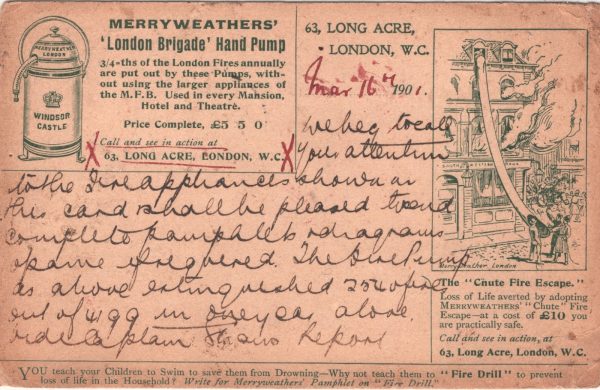 MERRYWEATHERS'
'London Brigade' Hand Pump
3/4-ths of the London Fires annually
are put out by these Pumps, with-
out using the larger appliances of
the M.F.B. Used in every Mansion,
Hotel and Theatre.
Price Complete, £5 5 0
Call and see in action at
X 63, LONG ACRE, LONDON, W.C. X
MERRYWEATHER
LONDON
WINDSOR
CASTLE
63, LONG ACRE,
LONDON, W.C.
Mar 16th 1901.
we beg to call
your attention
to the Fire appliances shown on
this card & shall be pleased to send
complete pamphlets & diagrams
of same if required. The Fire Pump
as above extinguished 2540 fires
out of 4199 in one year alone.
vide Captain Report
Merryweather London
The "Chute Fire Escape."
Loss of Life averted by adopting
MERRYWEATHERS' "Chute" Fire
Escape—at a cost of £10 you
are practically safe.
Call and see in action, at
63, Long Acre, London, W.C.
YOU teach your Children to Swim to save them from Drowning—Why not teach them to "Fire Drill" to prevent
loss of life in the Household? Write for Merryweathers' Pamphlet on "Fire Drill."